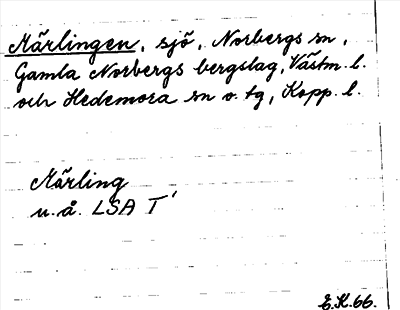 Märlingen, sjö, Norbergs sn,
Gamla Norbergs bergslag, Västm. l.
och Hedemora sn o. tg, Kopp. l.
Märling
u. å. LSA T'
E.K.66.